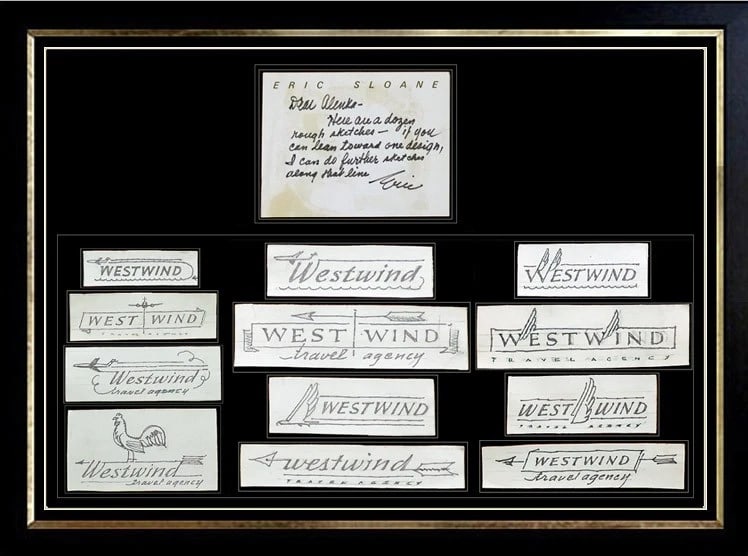 ERIC SLOANE
Dear Alenka-
Here are a dozen
rough sketches — if you
can lean toward one design,
I can do further sketches
along that line
Eric
WESTWIND
WEST WIND
Westwind
travel agency
Westwind
travel agency
Westwind
WEST WIND
travel agency
WESTWIND
westwind
TRAVEL AGENCY
WESTWIND
WESTWIND
TRAVEL AGENCY
WEST WIND
TRAVEL AGENCY
WESTWIND
travel agency